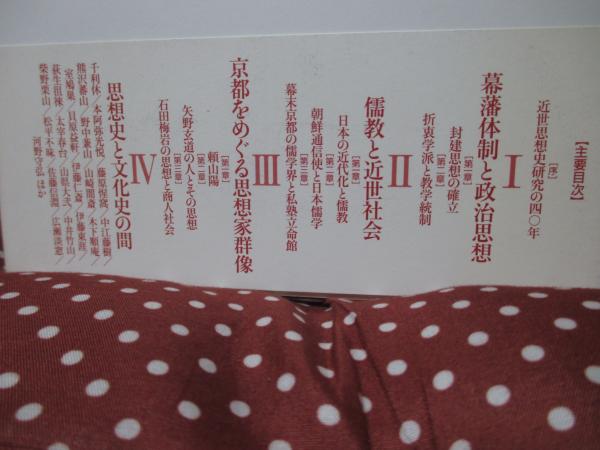 【主要目次】
[序]
近世思想史研究の四〇年
I
幕藩体制と政治思想
[第一章]
封建思想の確立
[第二章]
折衷学派と教学統制
II
儒教と近世社会
[第一章]
日本の近代化と儒教
[第二章]
朝鮮通信使と日本儒学
[第三章]
幕末京都の儒学界と私塾立命館
III
京都をめぐる思想家群像
[第一章]
頼山陽
[第二章]
矢野玄道の人とその思想
[第三章]
石田梅岩の思想と商人社会
IV
思想史と文化史の間
千利休/本阿弥光悦/藤原惺窩/中江藤樹/
熊沢蕃山/野中兼山/山崎闇斎/木下順庵/
室鳩巣/貝原益軒/伊藤仁斎/伊藤東涯/
荻生徂徠/太宰春台/山県大弐/中井竹山/
柴野栗山/松平不昧/佐藤信淵/広瀬淡窓/
河野守弘 ほか